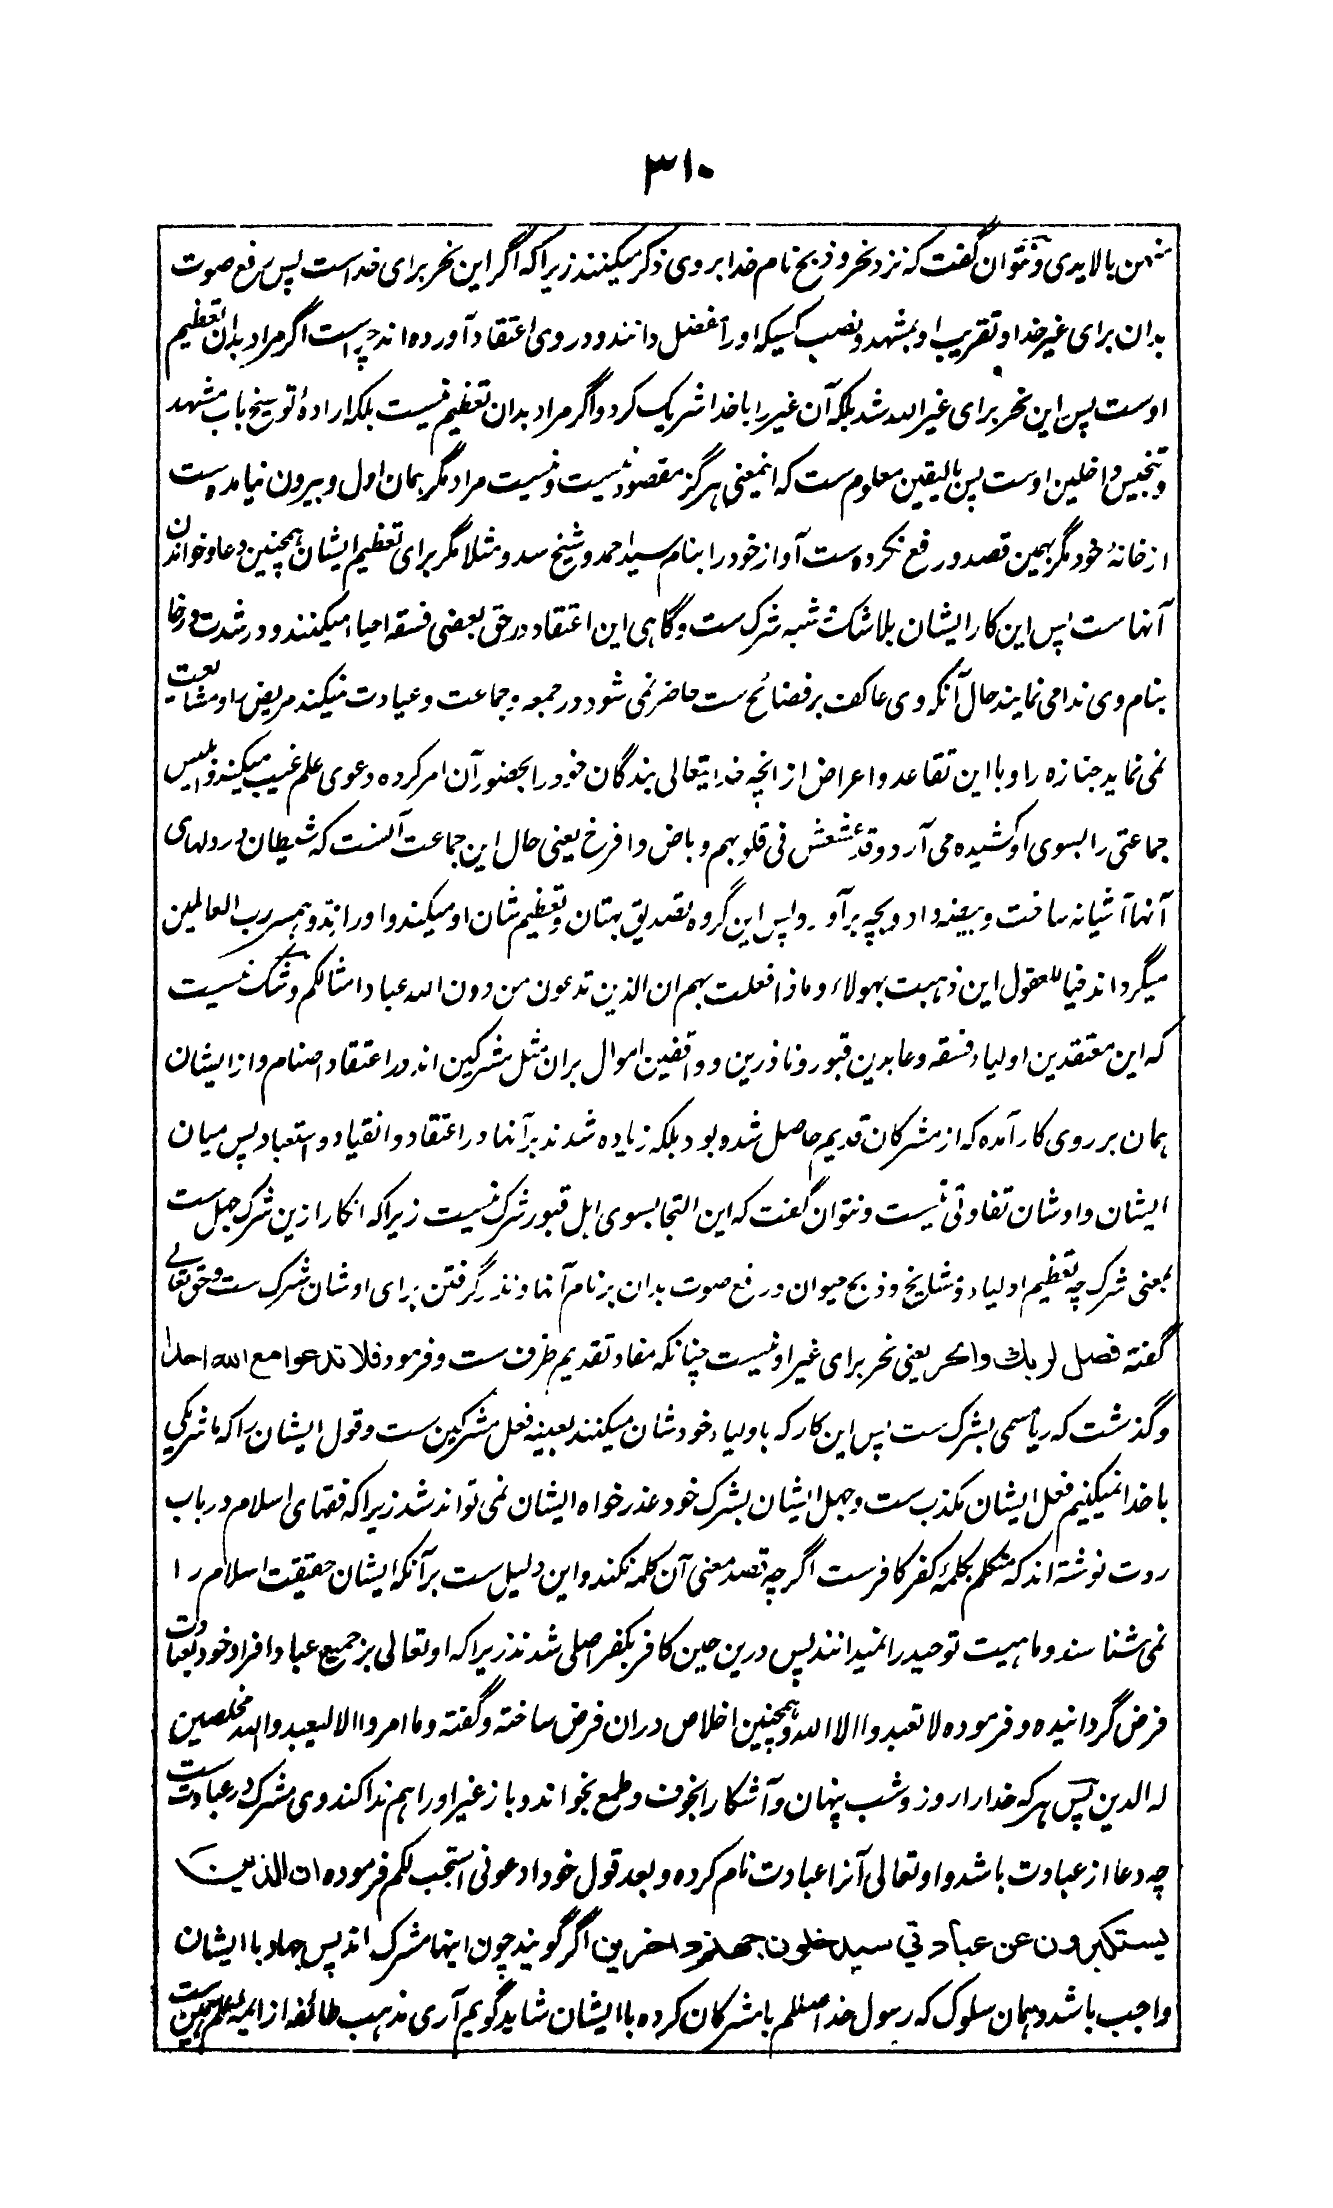 ۳۱۰
منهن بالایدی و نتوان گفت که نزد نحر و ذبح نام خدا بر وی ذکر میکنند زیرا که اگر این نحر برای خداست پس رفع صوت
بدان برای غیر خدا و تقریب او بمشهد و نصب کسیکه او را افضل دانند و در وی اعتقاد آورده اند چراست اگر مراد بدان تعظیم
اوست پس این نحر برای غیر الله شد بلکه آن غیر را با خدا شریک کرد و اگر مراد بدان تعظیم نیست بلکه ارادۀ توسیخ باب مشهد
و تنجیس داخلین اوست پس بالیقین معلوم ست که اینمعنی هرگز مقصود نیست و نیست مراد مگر همان اول و بیرون نیامده ست
از خانۀ خود مگر بهمین قصد و رفع نکرده ست آواز خود را بنام سید احمد و شیخ سدو مثلا مگر برای تعظیم ایشان و همچنین دعا و خواندن
آنهاست پس این کار ایشان بلا شک شبه شرک ست و گاهی این اعتقاد در حق بعضی فسقه احیاء میکنند و در شدت و رخا
بنام وی ندا می نمایند حال آنکه وی عاکف بر فضائح ست حاضر نمی شود در جمعه و جماعت و عیادت نمیکند مریض را و مشایعت
نمی نماید جنازه را و با این تقاعد و اعراض از انچه خدایتعالی بندگان خود را بحضور آن امر کرده دعوی علم غیب میکند و ابلیس
جماعتی را بسوی او کشیده می آرد و قد عشعش فی قلوبهم و باض و افرخ یعنی حال این جماعت آنست که شیطان در دلهای
آنها آشیانه ساخت و بیضه داد و بچه برآورد پس این گروه تصدیق بهتان و تعظیم شان او میکنند و او را ند و همسر رب العالمین
میگردانند فیا للعقول این ذهبت بهولاء و ما ذا فعلت بهم ان الذین تدعون من دون الله عباد امثالکم و شک نیست
که این معتقدین اولیاء فسقه و عابدین قبور و ناذرین و واقفین اموال بران مثل مشرکین اند در اعتقاد اصنام و از ایشان
همان بر روی کار آمده که از مشرکان قدیم حاصل شده بود بلکه زیاده شدند بر آنها در اعتقاد و انقیاد و استعباد پس میان
ایشان و اوشان تفاوتی نیست و نتوان گفت که این التجا بسوی اهل قبور شرک نیست زیرا که انکار ازین شرک جهل ست
بمعنی شرک چه تعظیم اولیاء و مشایخ و ذبح حیوان و رفع صوت بدان بر نام آنها و نذر گرفتن برای اوشان شرک ست و حق تعالے
گفته فصل لربك وانحر یعنی نحر برای غیر او نیست چنانکه مفاد تقدیم ظرف ست و فرمود فلا تدعوا مع الله احدا
و گذشت که ریا مسمی بشرک ست پس این کار که باولیاء خود شان میکنند بعینه فعل مشرکین ست و قول ایشان را که ما شریکی
با خدا نمیکنیم فعل ایشان مکذب ست و جهل ایشان بشرک خود عذر خواه ایشان نمی تواند شد زیرا که فقهای اسلام در باب
ردت نوشته اند که متکلم بکلمۀ کفر کافرست اگر چه قصد معنی آن کلمه نکند و این دلیل ست بر آنکه ایشان حقیقت اسلام را
نمی شناسند و ماهیت توحید را نمیدانند پس درین حین کافر بکفر اصلی شدند زیرا که او تعالی بر جمیع عباد افراد خود بعبادت
فرض گردانیده و فرموده لا تعبدوا الا الله و همچنین اخلاص دران فرض ساخته و گفته و ما امروا الا لیعبدوا الله مخلصین
له الدین پس هر که خدا را روز و شب پنهان و آشکارا بخوف و طمع بخواند و باز غیر او را هم ندا کند وی مشرک در عبادت ست
چه دعا از عبادت باشد و او تعالی آنرا عبادت نام کرده و بعد قول خود ادعونی استجب لکم فرموده ان الذین
یستکبرون عن عبادتي سیدخلون جهنم داخرین اگر گویند چون اینها مشرک اند پس جهاد با ایشان
واجب باشد و همان سلوک که رسول خدا صللم با مشرکان کرده با ایشان شاید گویم آری مذهب طائفه از ایمه علم همین ست